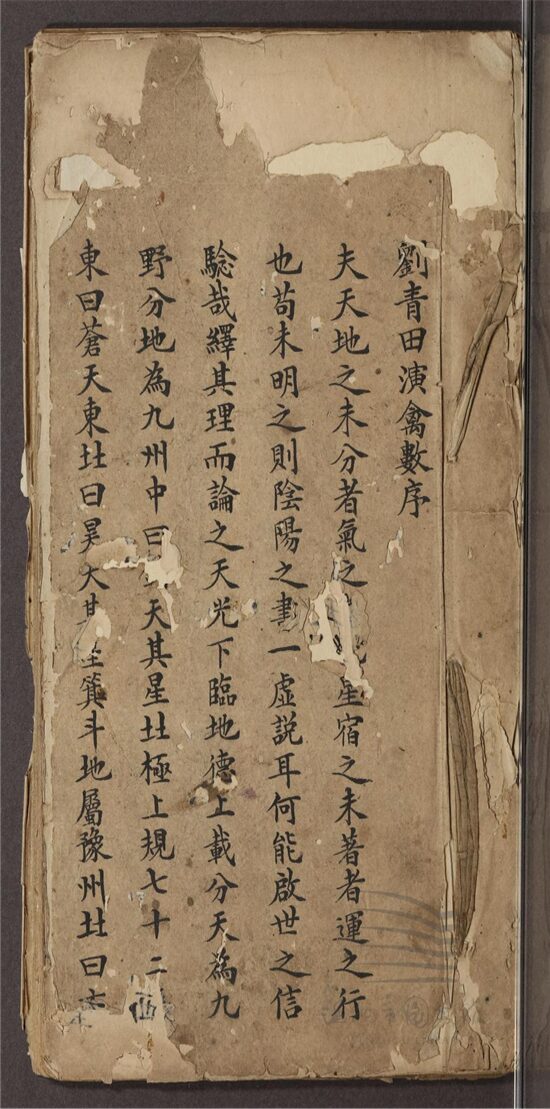 劉青田演禽數序
夫天地之未分者氣之星宿之未著者運之行
也苟未明之則陰陽之書一虛説耳何能啟世之信
驗哉繹其理而論之天光下臨地德上載分天為九
野分地為九州中曰天其星北極上規七十二
東曰蒼天東北曰昊天其星箕斗地屬豫州北曰玄